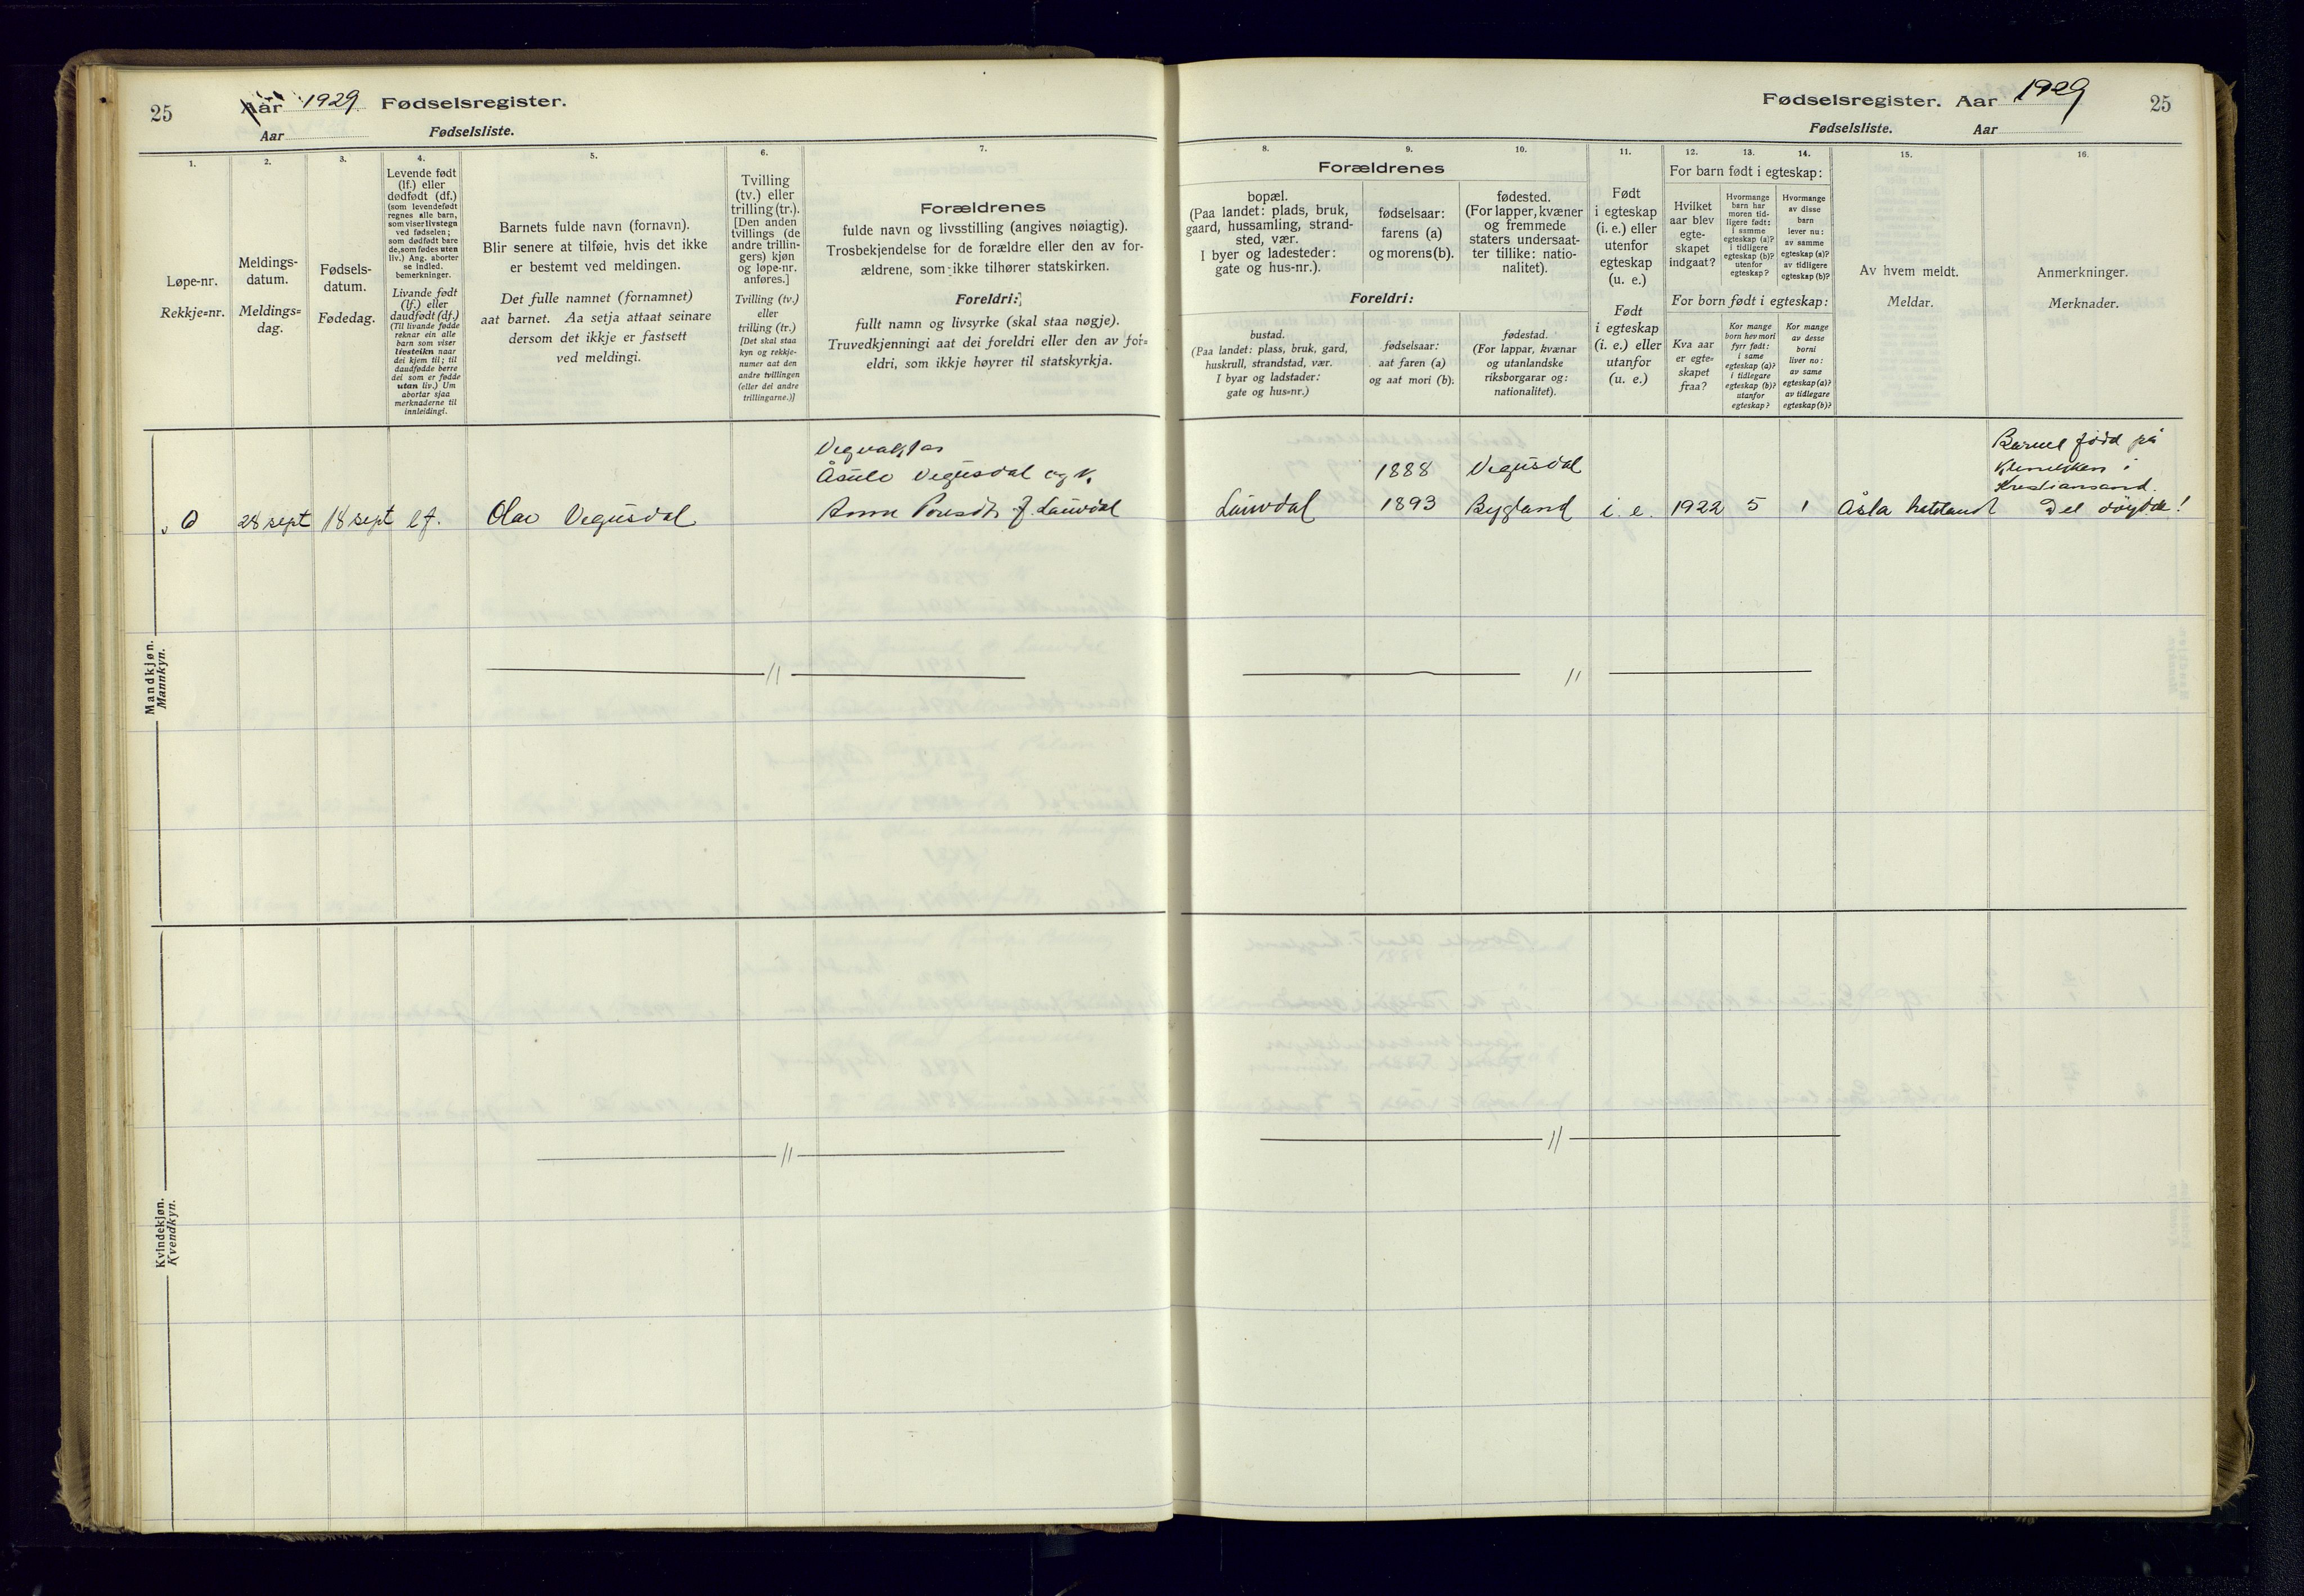 25
Aar 1929 Fødselsregister.
Aar Fødselsliste.
1.
Løpe-nr.
Rekkje=nr.
2.
Meldings-
datum.
Meldings=
dag.
3.
Fødsels-
datum.
Fødedag.
4.
Levende født
(lf.) eller
dødfødt (df.)
(som levendefødt
regnes alle barn,
som viser livstegn
ved fødselen;
som dødfødt bare
de, som fødes uten
liv.) Ang. aborter
se indled.
bemerkninger.
Livande født
(lf.) eller
daudfødt (df.)
(Til livande fødde
reknar ein alle
barn som viser
livsteikn naar
dei kjem til; til
daudfødde berre
dei som er fødde
utan liv.) Um
abortar sjaa
merknaderne til
innleidingi.
5.
Barnets fulde navn (fornavn).
Blir senere at tilføie, hvis det ikke
er bestemt ved meldingen.
Det fulle namnet (fornamnet)
aat barnet. Aa setja attaat seinare
dersom det ikkje er fastsett
ved meldingi.
6.
Tvilling
(tv.) eller
trilling (tr.).
[Den anden
tvillings (de
andre trillin-
gers) kjøn
og løpe-nr.
anføres.]
Tvilling (tv.)
eller
trilling (tr.)
[Det skal staa
kyn og rekkje-
numer aat den
andre tvillingen
(eller dei andre
trillingarne.)]
7.
Forældrenes
fulde navn og livsstilling (angives nøiagtig).
Trosbekjendelse for de forældre eller den av for-
ældrene, som ikke tilhører statskirken.
Foreldri:
fullt namn og livsyrke (skal staa nøgje).
Truvedkjenningi aat dei foreldri eller den av for=
eldri, som ikkje høyrer til statskyrkja.
Fødselsregister. Aar 1929 25
Fødselsliste. Aar
Forældrenes
8.
bopæl.
(Paa landet: plads, bruk,
gaard, hussamling, strand-
sted, vær.
I byer og ladesteder:
gate og hus-nr.).
9.
fødselsaar:
farens (a)
og morens (b).
10.
fødested.
(For lapper, kvæner
og fremmede
staters undersaat-
ter tillike: natio-
nalitet).
Foreldri:
bustad.
(Paa landet: plass, bruk, gard,
huskrull, strandstad, vær.
I byar og ladstader:
gate og hus=nr.)
fødselsaar:
aat faren (a)
og aat mori (b).
fødestad.
(For lappar, kvænar
og utanlandske
riksborgarar og:
nationalitet).
11.
Født
i egteskap
(i. e.) eller
utenfor
egteskap
(u. e.)
Født
i egteskap
(i. e.) eller
utanfor
(u. e.)
12. 13. 14.
For barn født i egteskap:
Hvilket
aar blev
egte-
skapet
indgaat?
Hvormange
barn har
moren tid-
ligere født:
i samme
egteskap (a)?
i tidligere
egteskap (b)?
utenfor
egteskap?
Hvormange
av disse
barn
lever nu:
av samme
egteskap (a)?
av tidligere
egteskap (b)?
For born født i egteskap:
Kva aar
er egte=
skapet
fraa?
Kor mange
born hev mori
fyrr født:
i same
egteskap (a)?
i tidlegare
egteskap (b)?
utanfor
egteskap?
Kor mange
av desse
borni
liver no:
av same
egteskap (a)?
av tidlegare
egteskap (b)?
15.
Av hvem meldt.
Meldar.
16.
Anmerkninger.
Merknader.
Mandkjøn.
Mannkyn.
0 28 sept 18 sept lf. Olav Vegusdal
Vegvaktar
Åsulv Vegusdal og k.
f. Lauvdal
Lauvdal
1888 Vegusdal
1893 Bygland
i. e. 1922 5 1 Åsta
Barnet fødd på
i
Kristiansand.
Del døydde!
Kvindekjøn.
Kvendkyn.